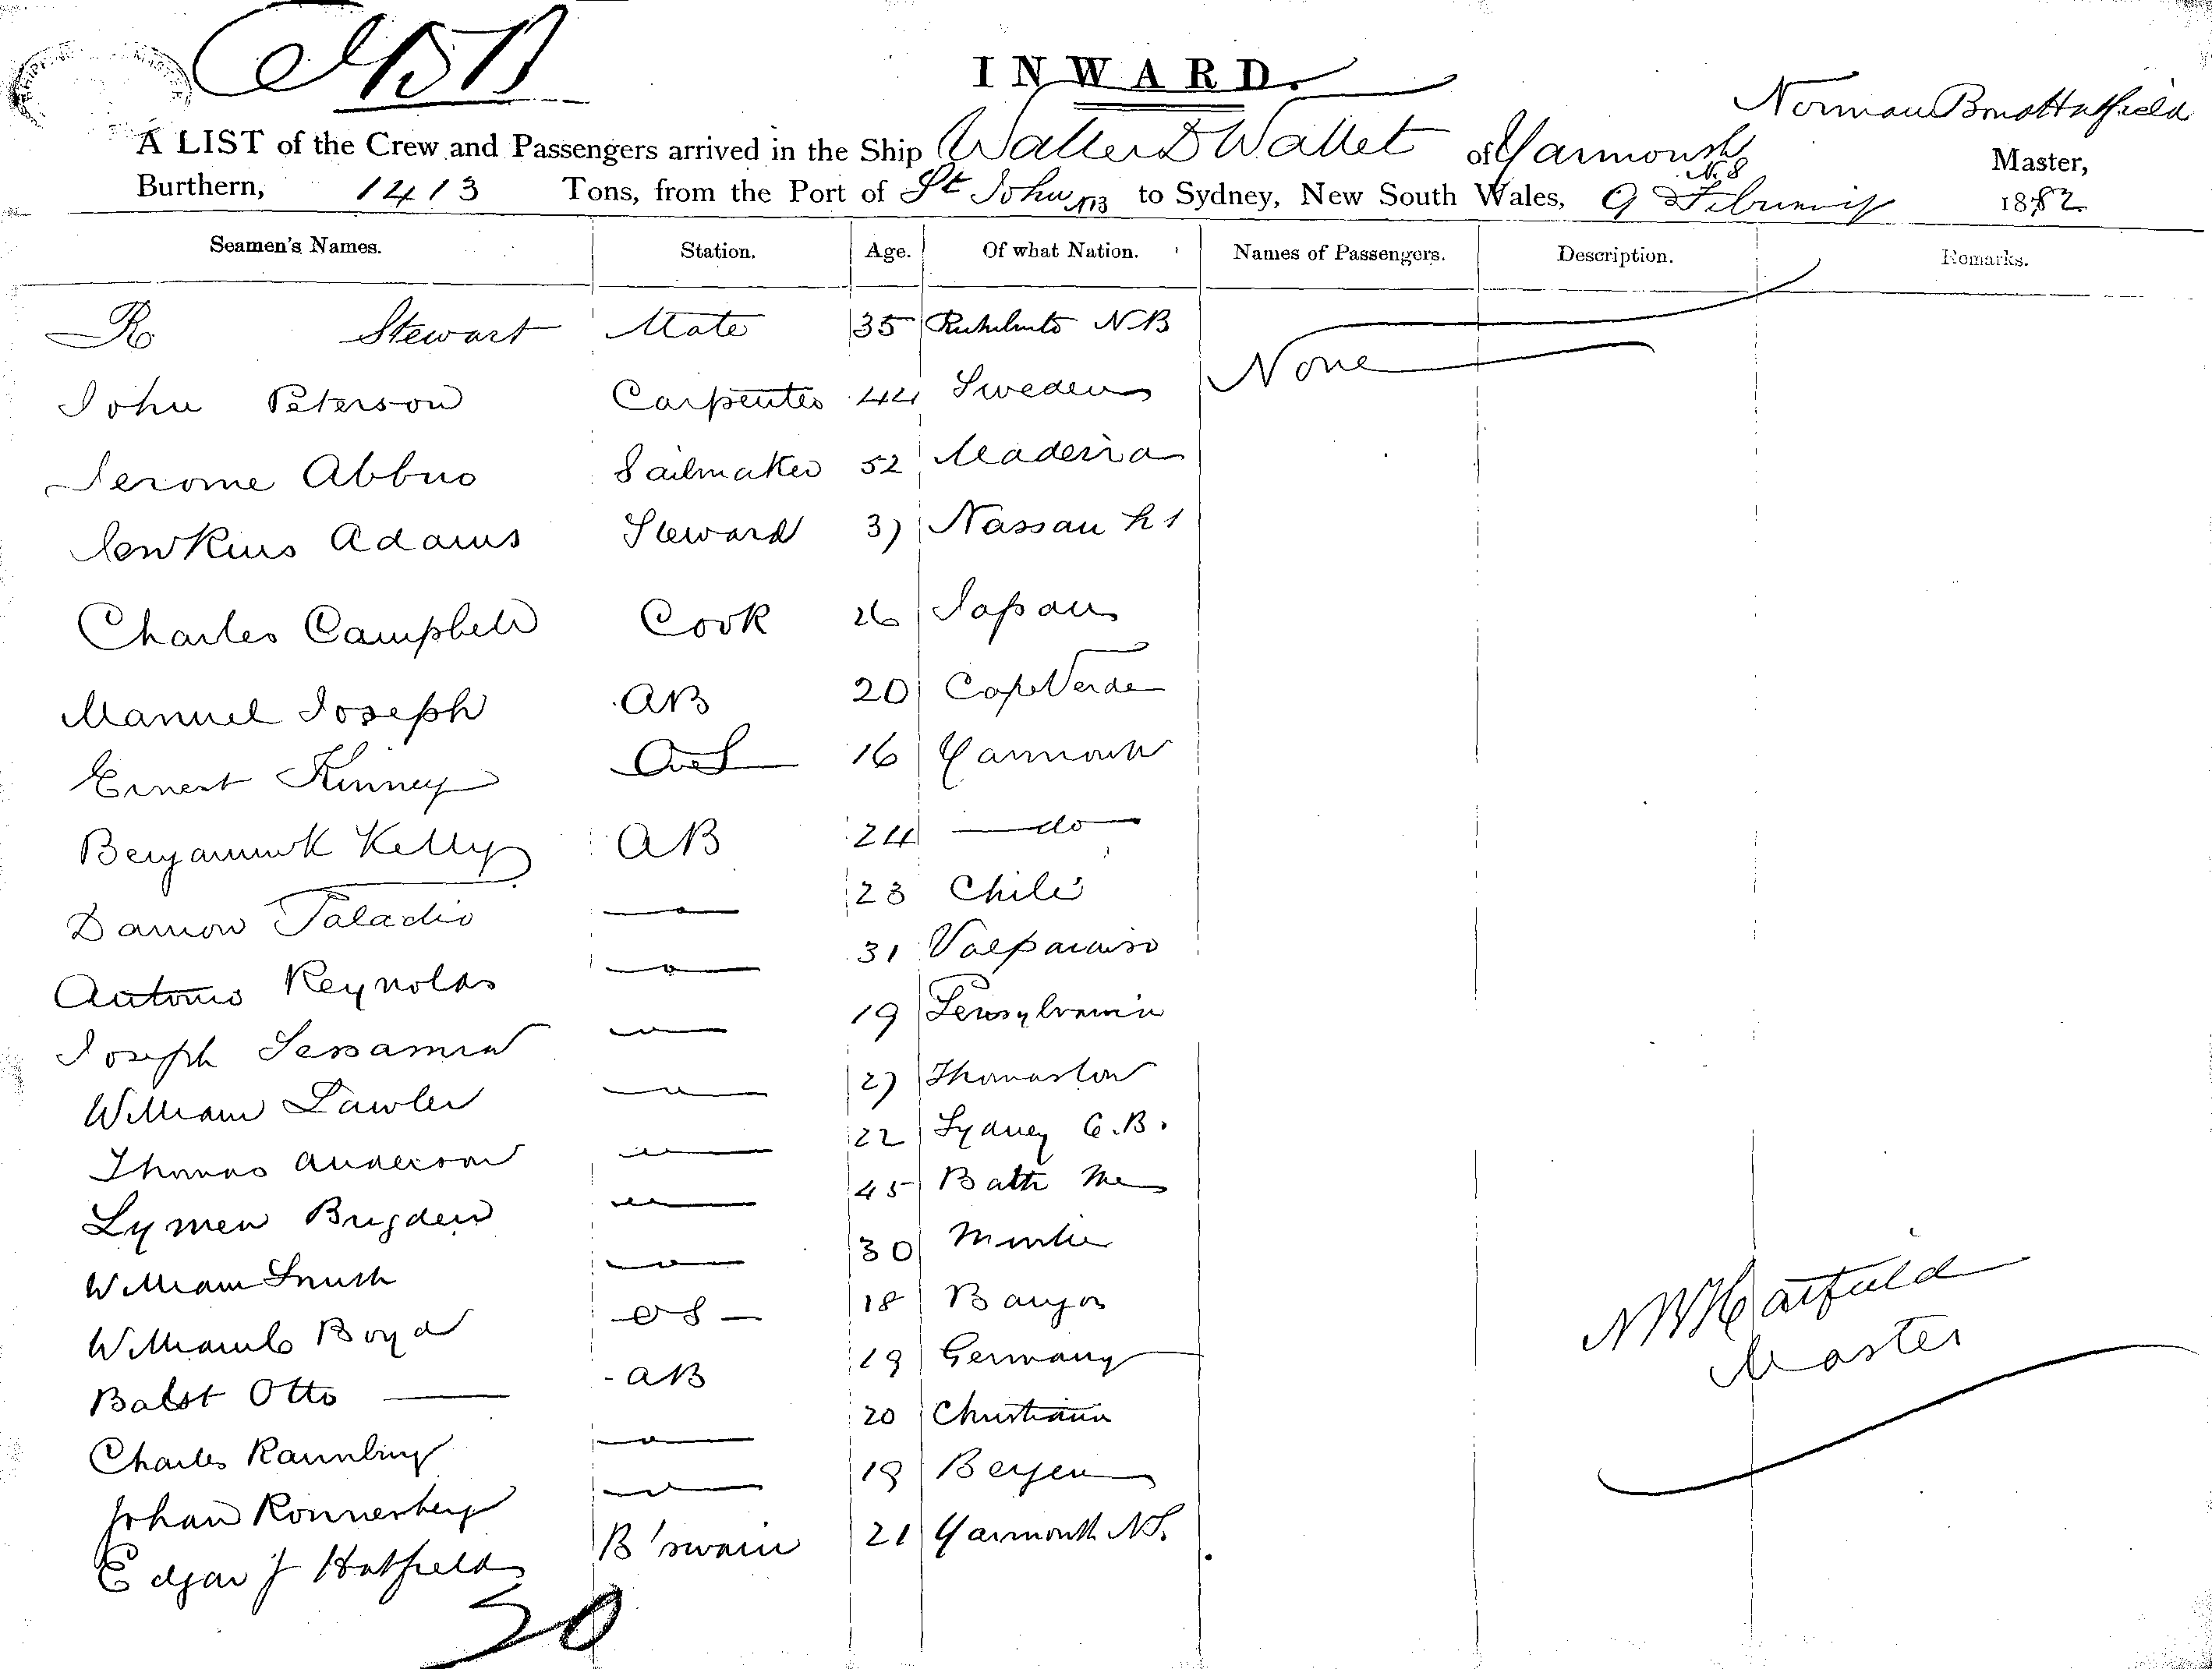 INWARD.
Norman Bond Hatfield
A LIST of the Crew and Passengers arrived in the Ship Walter D Wallet of Yarmouth N.S Master,
Burthern, 1413 Tons, from the Port of St John NB to Sydney, New South Wales, 9 February 1882
Seamen's Names. Station. Age. Of what Nation. Names of Passengers. Description. Remarks.
R Stewart Mate 35 NB None
John Peterson Carpenter 44 Sweden
Jerome Sailmaker 52 Madeira
Adams Steward 37 Nassau
Charles Campbell Cook 26 Japan
Manuel Joseph AB 20 Cape Verde
Ernest Kinney 16 Yarmouth
Kelly AB 24 do
23 Chili
Antonio Reynolds 31 Valparaiso
Joseph 19 Pensylvania
William Lawler 27 Thomaston
Thomas Anderson 22 Sydney C.B.
Lymen Brigden 45 Bath Me
William Smith 30
Boyd OS 18 Bangor
Otto AB 19 Germany
Charles 20 Christiana
Johan Ronnerberg 19 Bergen
Edgar J Hatfield B'swain 21 Yarmouth NS.
20
N B Hatfield
Master